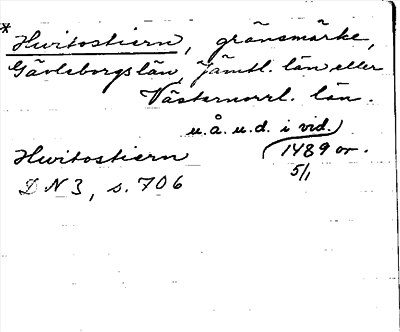 * Hwitostiern, gränsmärke,
Gävleborgs län, Jämtl. län eller
Västernorrl. län.
u.å. u.d. i vid.
Hwitostiern (1489 or.
DN 3, s. 706 5/1